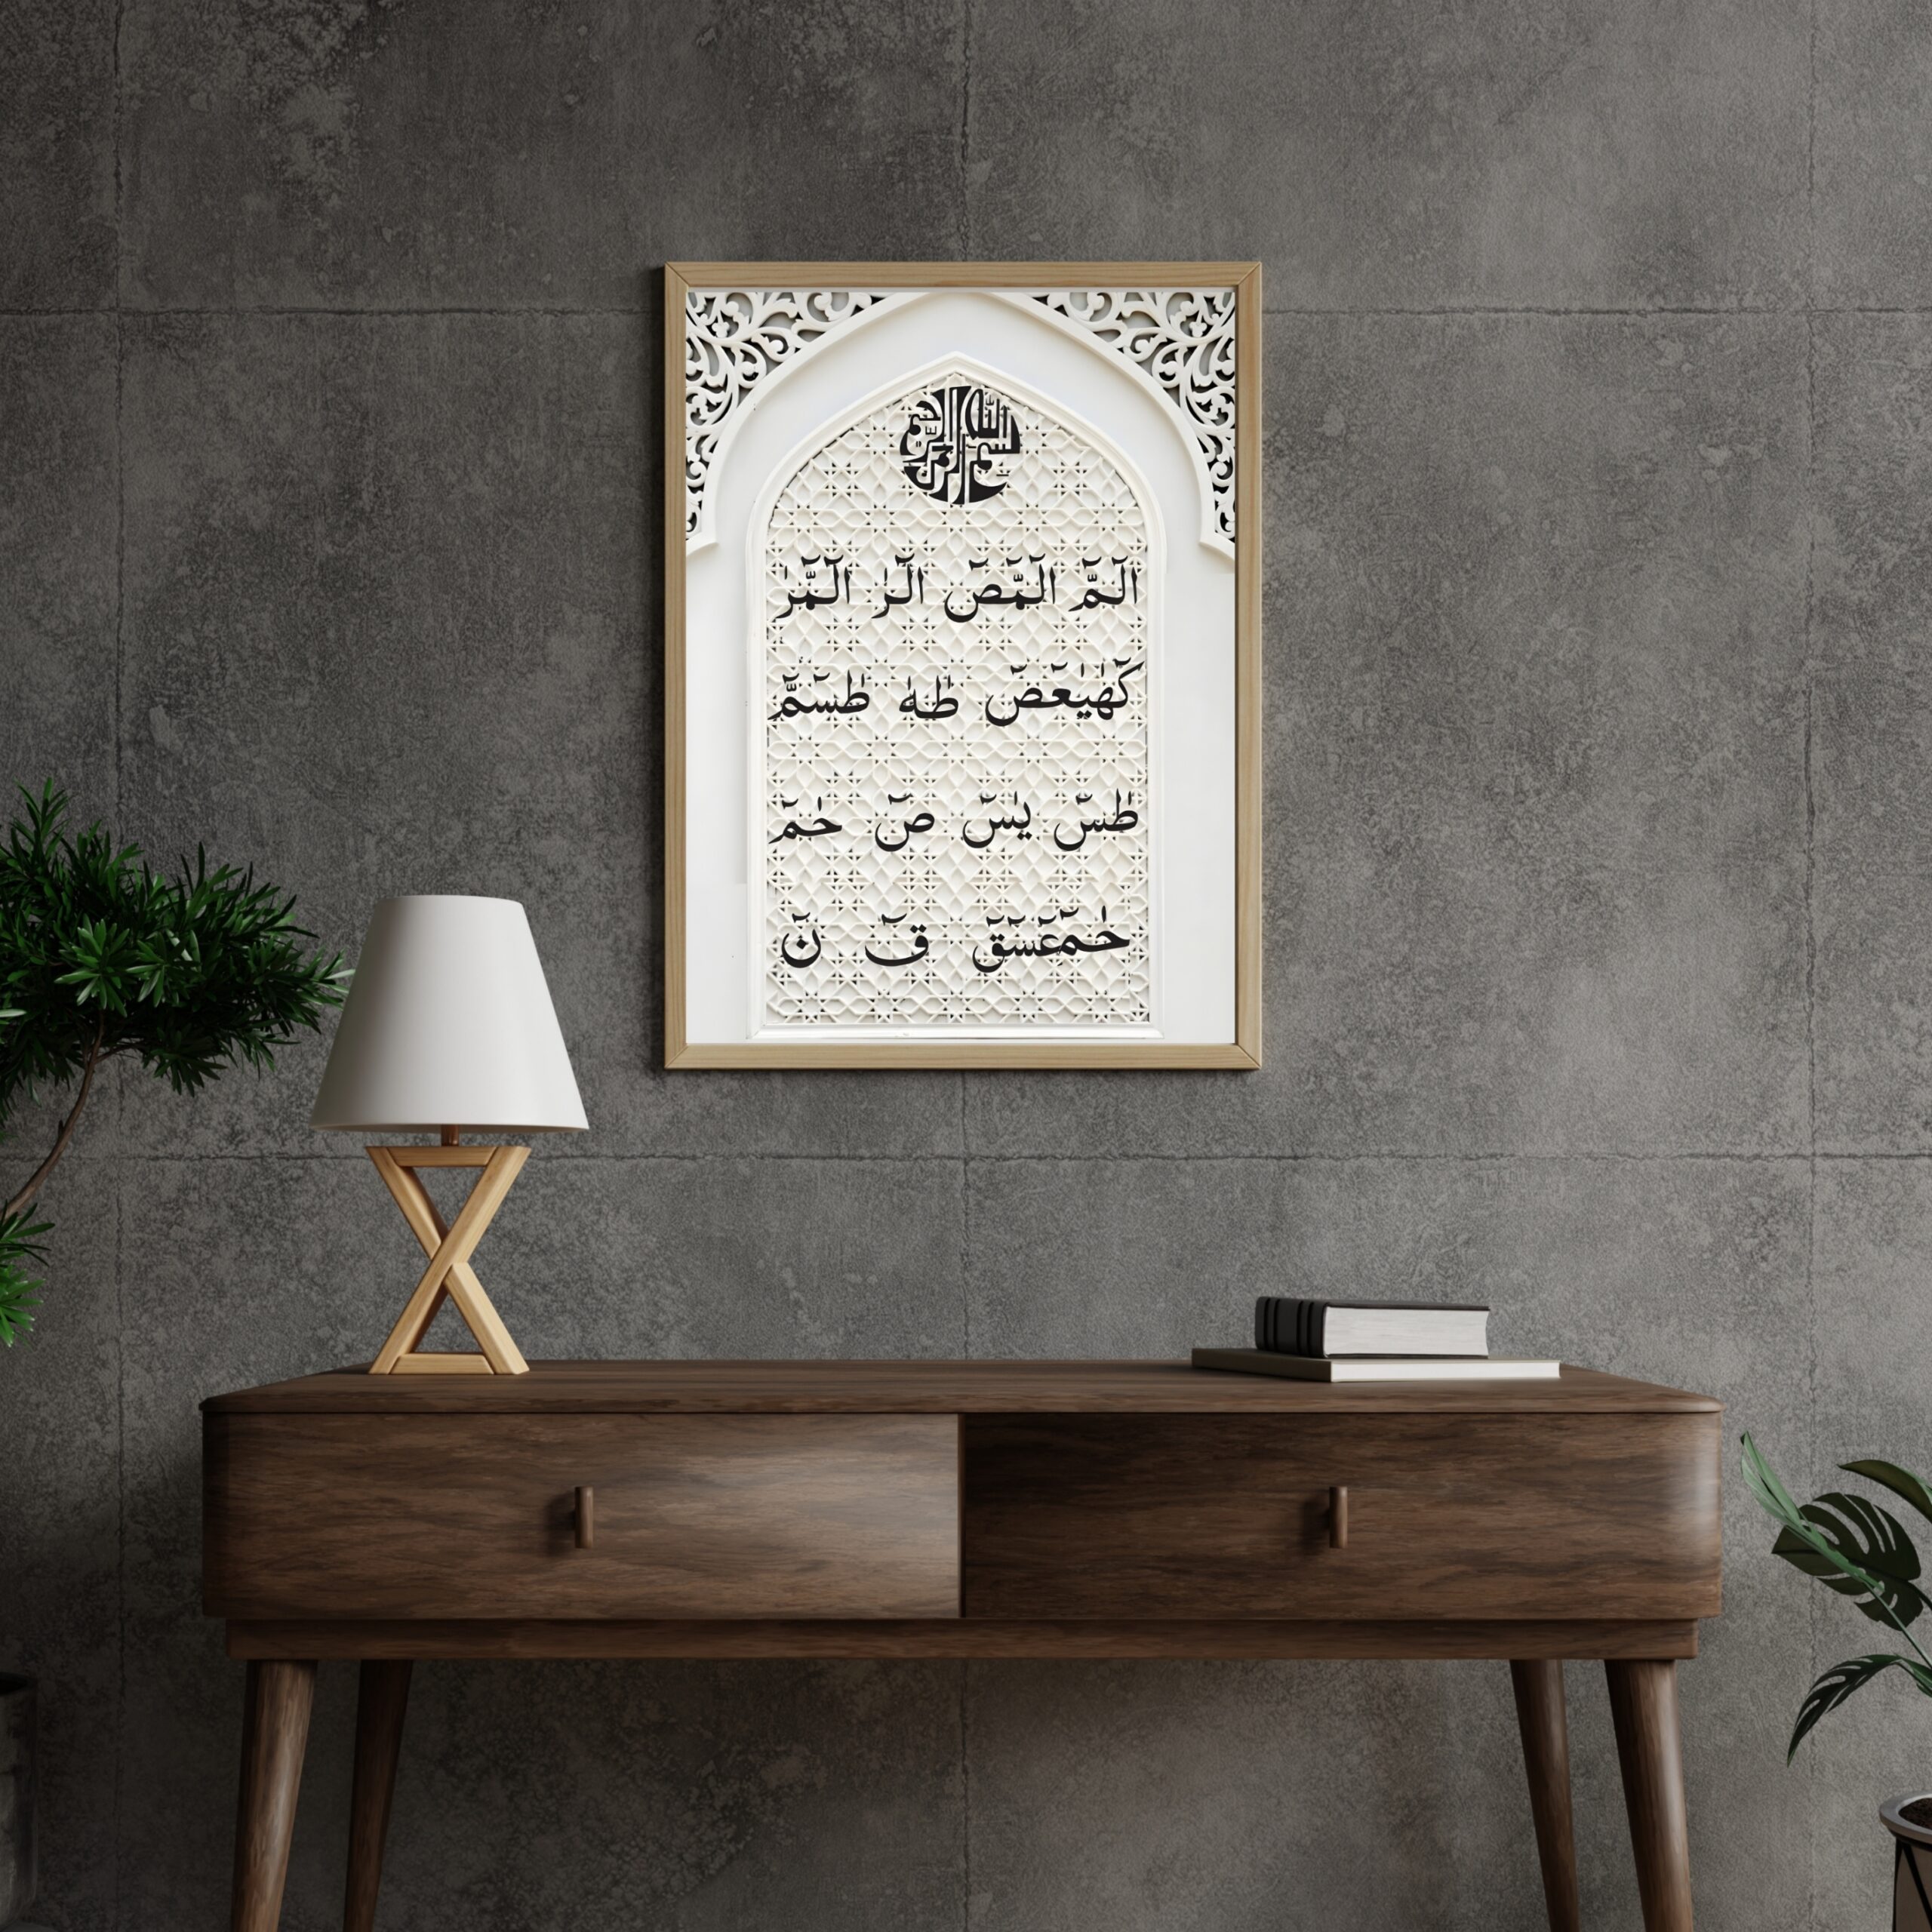 بسم الله الرحمن الرحيم
الٓمّٓ الٓمّٓصٓ الٓرٰ الٓمّٓرٰ
كٓهٰيٰعٓصٓ طٰهٰ طٰسٓمّٓ
طٰسٓ يٰسٓ صٓ حٰمٓ
حٰمٓعٓسٓقٓ قٓ نٓ